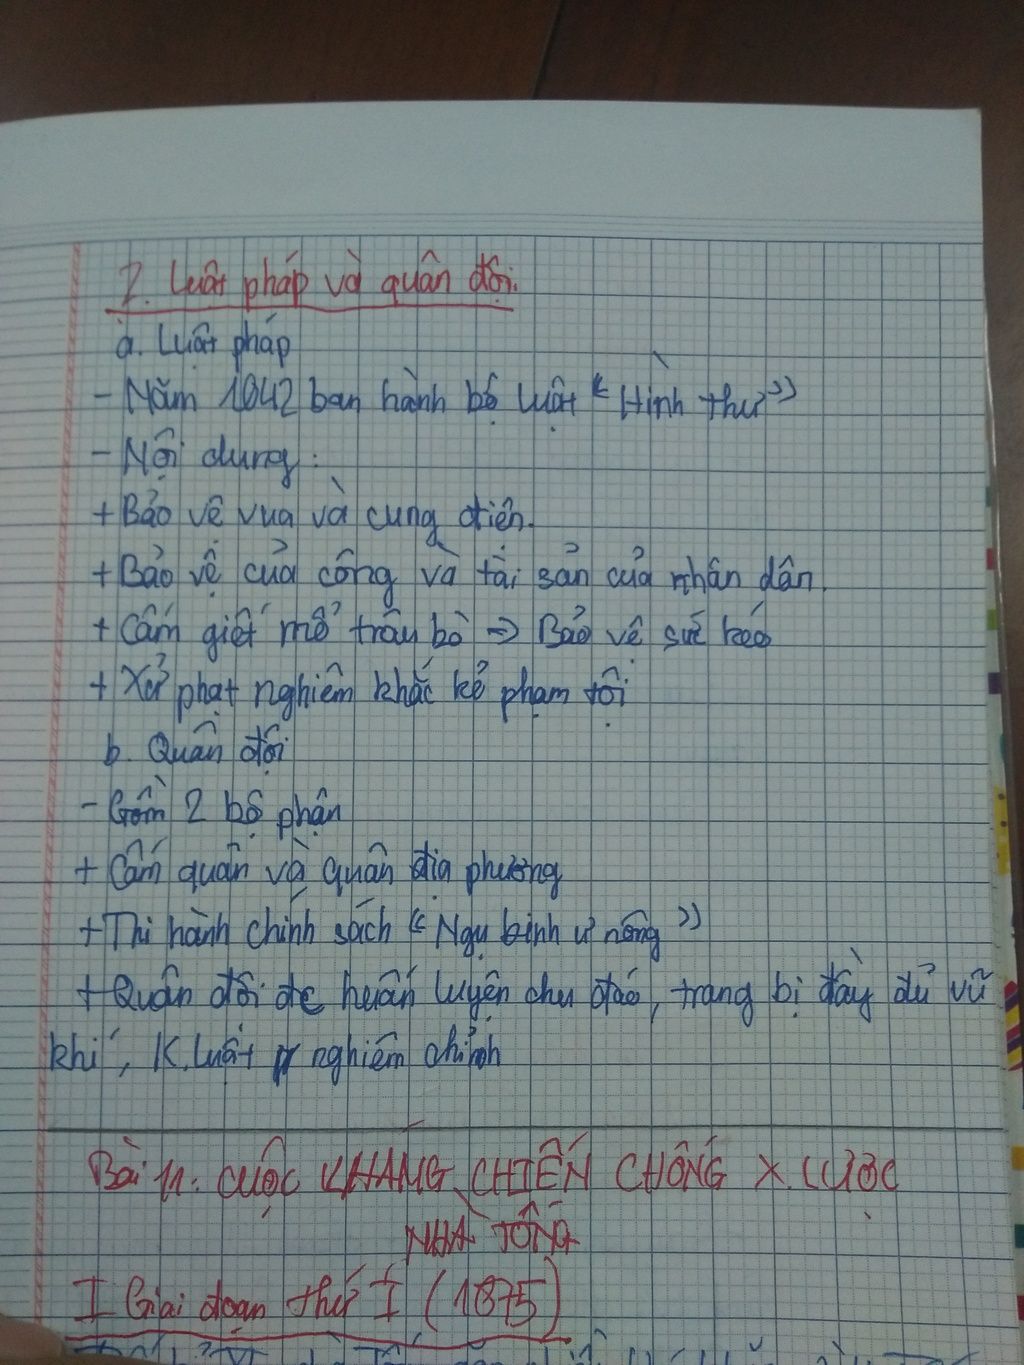 2. Luật pháp và quân đội.
a. Luật pháp
- Năm 1042 ban hành bộ luật "Hình thư"
- Nội dung:
+ Bảo vệ vua và cung điện.
+ Bảo vệ của công và tài sản của nhân dân.
+ Cấm giết mổ trâu bò => Bảo vệ sức kéo
+ Xử phạt nghiêm khắc kẻ phạm tội
b. Quân đội
- Gồm 2 bộ phận
+ Cấm quân và quân địa phương
+ Thi hành chính sách "Ngụ binh ư nông"
+ Quân đội đc huấn luyện chu đáo, trang bị đầy đủ vũ
khí, K.luật nghiêm chỉnh
Bài 11: CUỘC KHÁNG CHIẾN CHỐNG X.LƯỢC
NHÀ TỐNG
I Giai đoạn thứ I (1075)